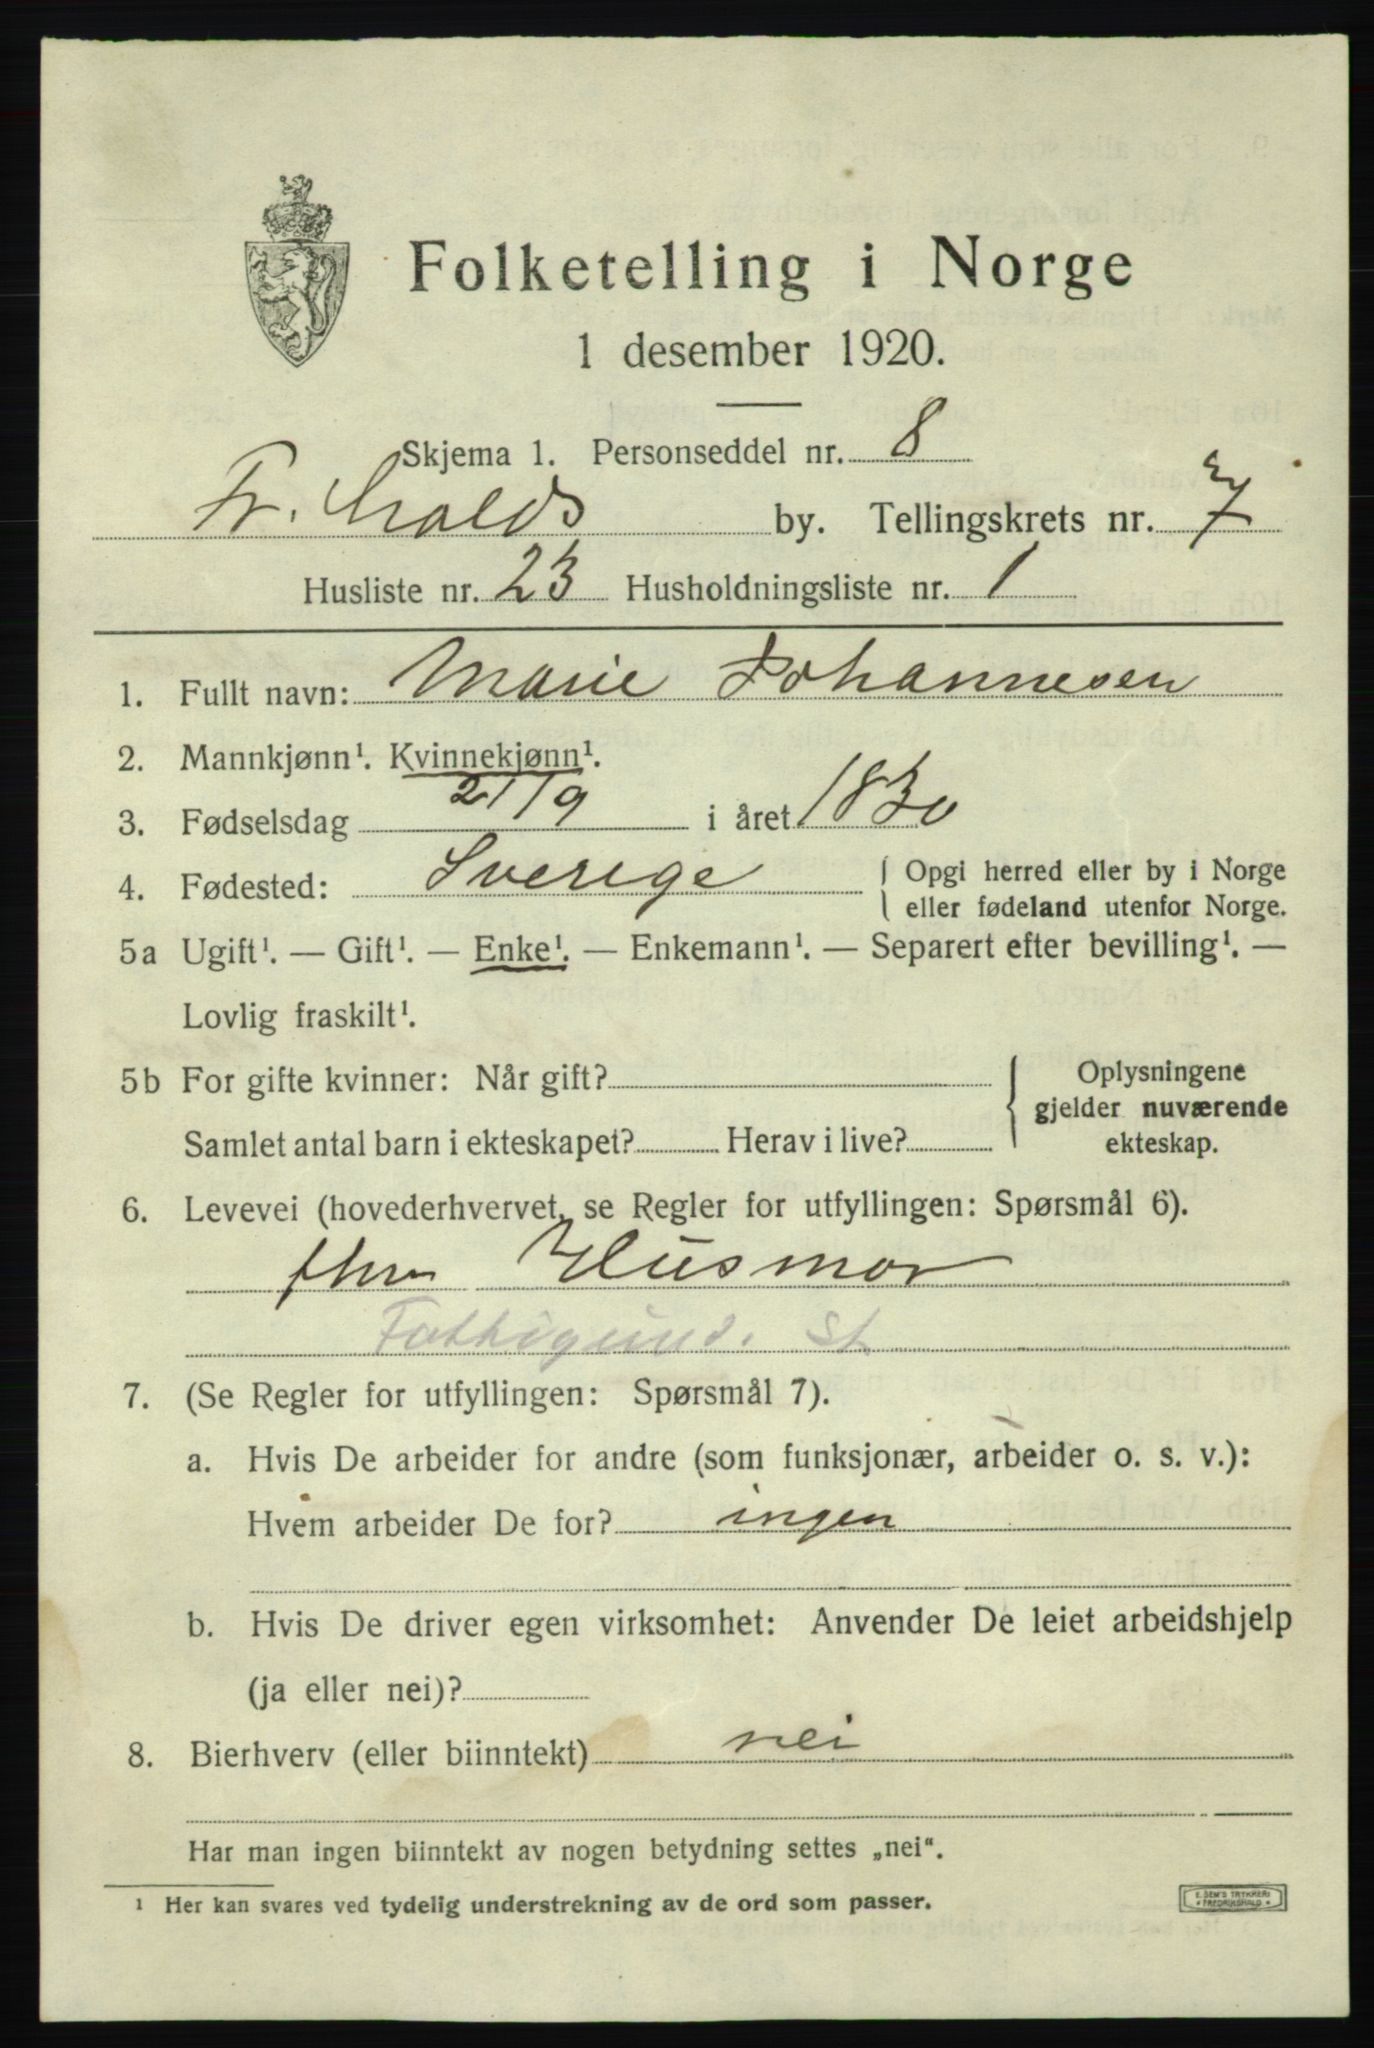 Folketelling i Norge
1 desember 1920.
Skjema 1. Personseddel nr. 8
Fr. halds by. Tellingskrets nr. 7
Husliste nr. 23 Husholdningsliste nr. 1
1. Fullt navn: Marie Johannesen
2. Mannkjønn¹. Kvinnekjønn¹.
3. Fødselsdag 21/9 i året 1830
4. Fødested: Sverige { Opgi herred eller by i Norge
eller fødeland utenfor Norge.
5a Ugift¹. — Gift¹. — Enke¹. — Enkemann¹. — Separert efter bevilling¹. —
Lovlig fraskilt¹.
5b For gifte kvinner: Når gift? { Oplysningene
gjelder nuværende
Samlet antal barn i ekteskapet? Herav i live? ekteskap.
6. Levevei (hovederhvervet, se Regler for utfyllingen: Spørsmål 6).
fhv Husmor
Fattigund. St
7. (Se Regler for utfyllingen: Spørsmål 7).
a. Hvis De arbeider for andre (som funksjonær, arbeider o. s. v.):
Hvem arbeider De for? ingen
b. Hvis De driver egen virksomhet: Anvender De leiet arbeidshjelp
(ja eller nei)?
8. Bierhverv (eller biinntekt) nei
Har man ingen biinntekt av nogen betydning settes „nei“.
¹ Her kan svares ved tydelig understrekning av de ord som passer.
E. SEM'S TRYKKERI
FREDRIKSHALD